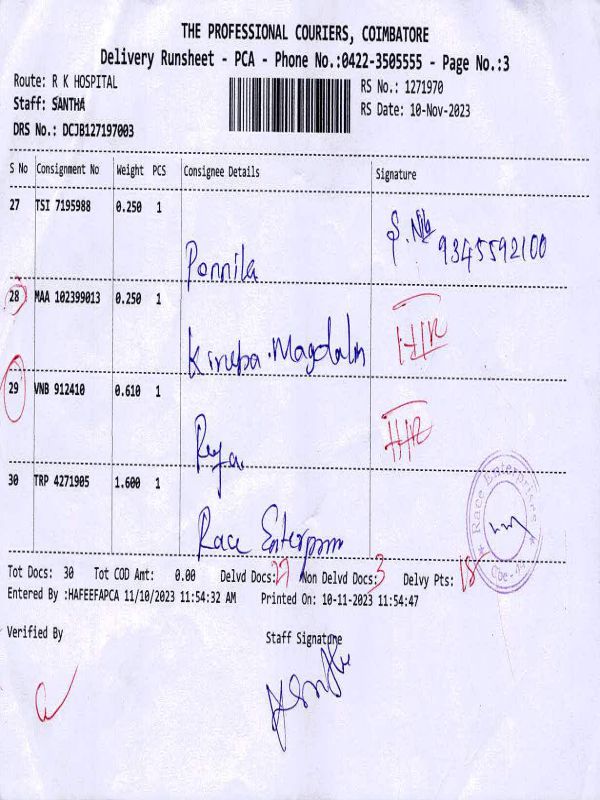 THE PROFESSIONAL COURIERS, COIMBATORE
Delivery Runsheet - PCA - Phone No.:0422-3505555 - Page No.:3
Route: R K HOSPITAL
RS No.: 1271970
Staff: SANTHA
RS Date: 10-Nov-2023
DRS No.: DCJB127197003
S No Consignment No Weight PCS Consignee Details Signature
27 TSI 7195988 0.250 1
S. Nila 9345592100
Ponnila
28 MAA 102399013 0.250 1
Kirupa.Magdaln
29 VNB 912410 0.610 1
30 TRP 4271905 1.600 1
Race Enterprises
Race Enterprises
Tot Docs: 30 Tot COD Amt: 0.00 Delvd Docs: 27 Non Delvd Docs: 3 Delvy Pts: 18
Entered By :HAFEEFAPCA 11/10/2023 11:54:32 AM Printed On: 10-11-2023 11:54:47
Verified By Staff Signatone